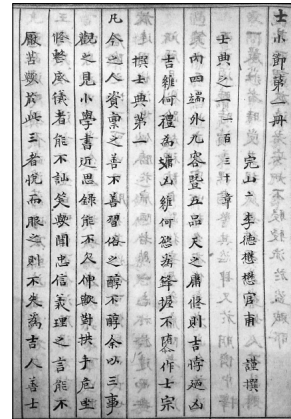 士小節第一册
完山 李德懋懋官甫 謹撰
士典之一 一百三十章
內四端外九容曁五品天之庸修則吉悖迺凶
吉維何禮爲墉凶維何慾爲鋒握不隳作士宗
撰士典第一
凡今之人資稟之善不善習俗之醇不醇余以三事
觀之見小學書近思錄能不欠伸歟對拱手危坐
修飭威儀者能不訕笑歟聞忠信義理之言能不
厭苦歟於此三者悅而服之則不失爲吉人善士